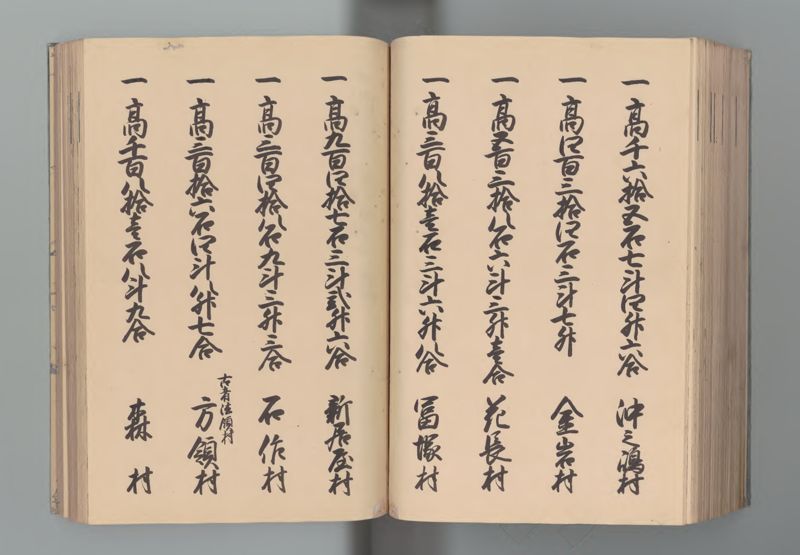 一 高千六拾五石七斗四升六合 沖之嶋村
一 高四百三拾四石三斗七升 金岩村
一 高五百三拾八石六斗三升壱合 花長村
一 高三百八拾壱石三斗六升八合 冨塚村
一 高九百四拾七石三斗弐升六合 新居屋村
一 高三百四拾八石九斗三升三合 石作村
一 高三百拾六石四斗八升七合 方領村
古者法領村
一 高千百八拾壱石八斗九合 森村